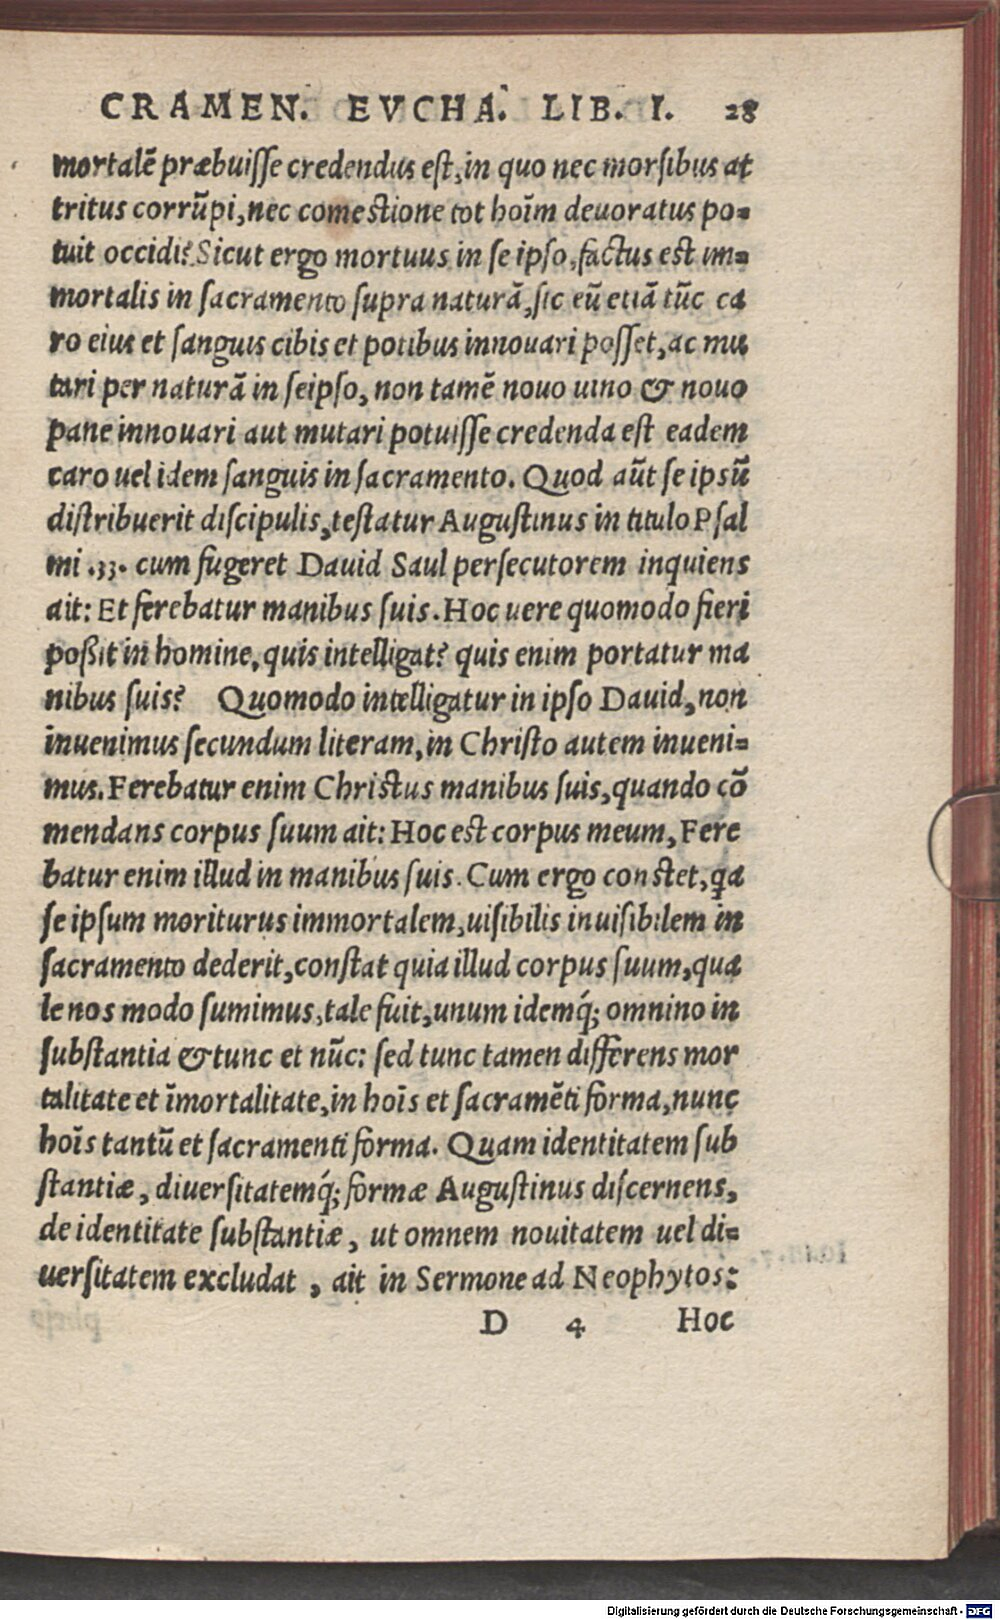 CRAMEN. EVCHA. LIB. I. 28
mortalẽ præbuiſſe credendus eſt, in quo nec morſibus at
tritus corrũpi, nec comeſtione tot hoĩm deuoratus po-
tuit occidi? Sicut ergo mortuus in ſe ipſo, factus eſt im-
mortalis in ſacramento ſupra naturã, ſic eũ etiã tũc ca
ro eius et ſanguis cibis et potibus innouari poſſet, ac mu
tari per naturã in ſeipſo, non tamẽ nouo uino & nouo
pane innouari aut mutari potuiſſe credenda eſt eadem
caro uel idem ſanguis in ſacramento. Quod aũt ſe ipsũ
diſtribuerit diſcipulis, teſtatur Auguſtinus in titulo Pſal
mi .33. cum fugeret Dauid Saul perſecutorem inquiens
ait: Et ferebatur manibus ſuis. Hoc uere quomodo fieri
poßit in homine, quis intelligat? quis enim portatur ma
nibus ſuis? Quomodo intelligatur in ipſo Dauid, non
inuenimus ſecundum literam, in Chriſto autem inueni-
mus. Ferebatur enim Chriſtus manibus ſuis, quando cõ
mendans corpus ſuum ait: Hoc eſt corpus meum, Fere
batur enim illud in manibus ſuis. Cum ergo conſtet, ꝗa
ſe ipſum moriturus immortalem, uiſibilis inuiſibilem in
ſacramento dederit, conſtat quia illud corpus ſuum, qua
le nos modo ſumimus, tale fuit, unum idemq́; omnino in
ſubſtantia & tunc et nũc: ſed tunc tamen differens mor
talitate et ĩmortalitate, in hoĩs et ſacramẽti forma, nunc
hoĩs tantũ et ſacramenti forma. Quam identitatem ſub
ſtantiæ, diuerſitatemq́; formæ Auguſtinus diſcernens,
de identitate ſubſtantiæ, ut omnem nouitatem uel di-
uerſitatem excludat, ait in Sermone ad Neophytos:
D 4 Hoc
Digitalisierung gefördert durch die Deutsche Forschungsgemeinschaft - DFG